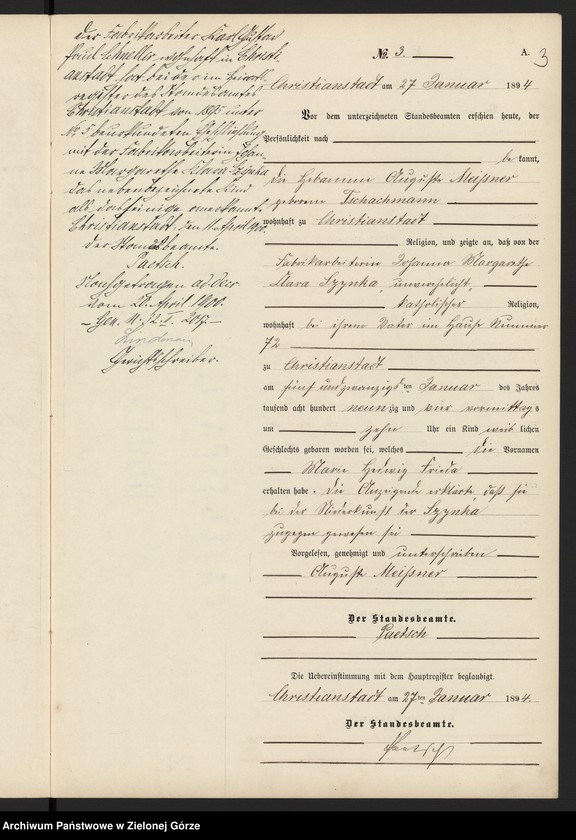 der Fabrikarbeiter Karl Gustav
Paul Schneller wohnhaft in Christi-
anstadt hat bei der im Heirats-
register des Standesamtes
Christianstadt von 1895 unter
No 5 beurkundeten Eheschließung
mit der Fabrikarbeiterin Johan-
ne Margarethe Klara Szynka
das nebenbezeichnete Kind
als das seinige anerkannt.
Christianstadt, den April
der Standesbeamte.
Paetsch.
vom 20. April 1900.
Gerichtsschreiber.
№ 3.
A. 3
Christianstadt am 27 Januar 1894
Vor dem unterzeichneten Standesbeamten erschien heute, der
Persönlichkeit nach
be kannt,
die Hebamme Auguste Meißner
geborene Tschachmann
wohnhaft zu Christianstadt
Religion, und zeigte an, daß von der
Fabrikarbeiterin Johanna Margarethe
Klara Szynka, unverehelicht,
katholischer Religion,
wohnhaft bei ihrem Vater im Hause Nummer
72
zu Christianstadt
am fünf und zwanzigsten Januar des Jahres
tausend acht hundert neun zig und vier vormittags
um zehn Uhr ein Kind weib lichen
Geschlechts geboren worden sei, welches die Vornamen
Marie Hedwig Frieda
erhalten habe. Die Anzeigende erklärte daß sie
bei der Niederkunft der Szynka
zugegen gewesen sei
Vorgelesen, genehmigt und unterschrieben
Auguste Meißner
Der Standesbeamte.
Paetsch
Die Uebereinstimmung mit dem Hauptregister beglaubigt.
Christianstadt am 27ten Januar 1894.
Der Standesbeamte.
Paetsch
Archiwum Państwowe w Zielonej Górze